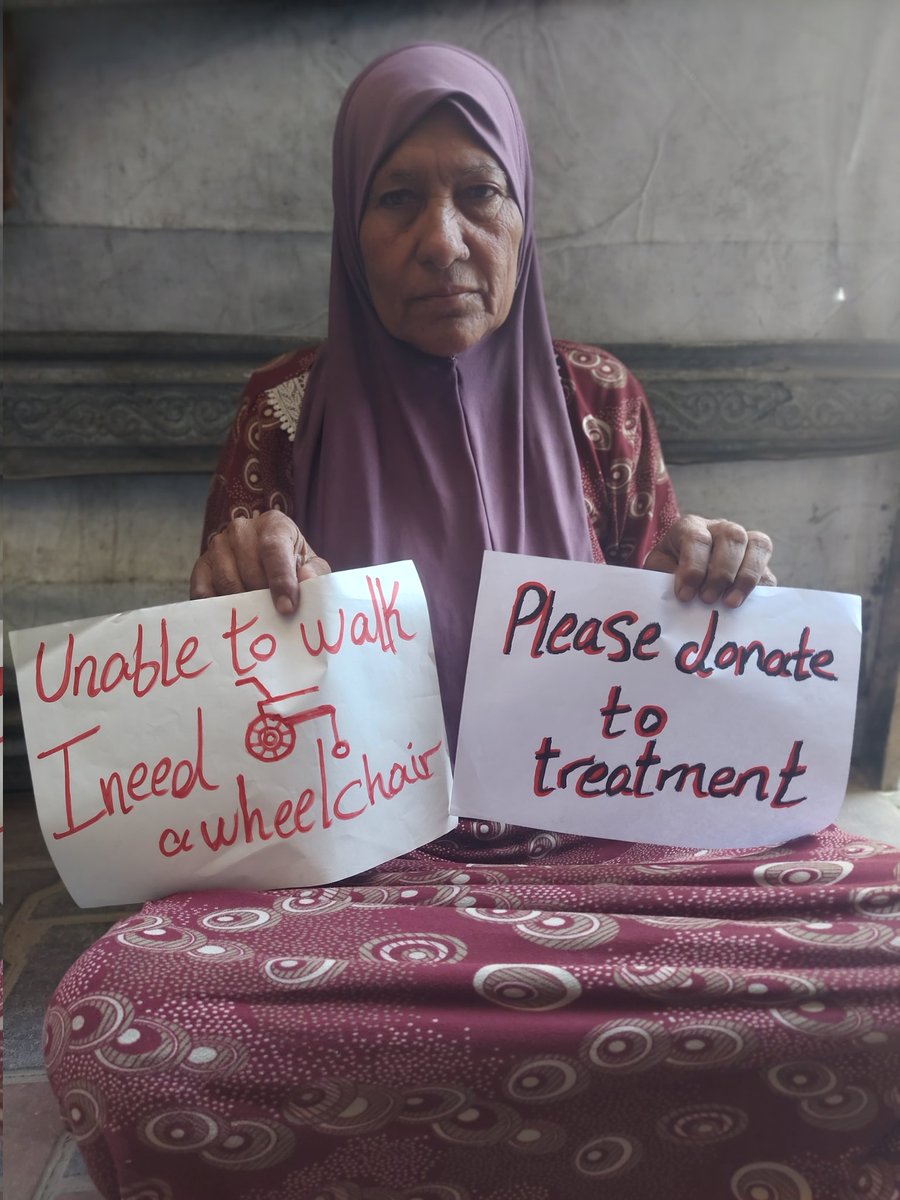 Unable to walk
I need
a wheelchair
Please donate
to
treatment